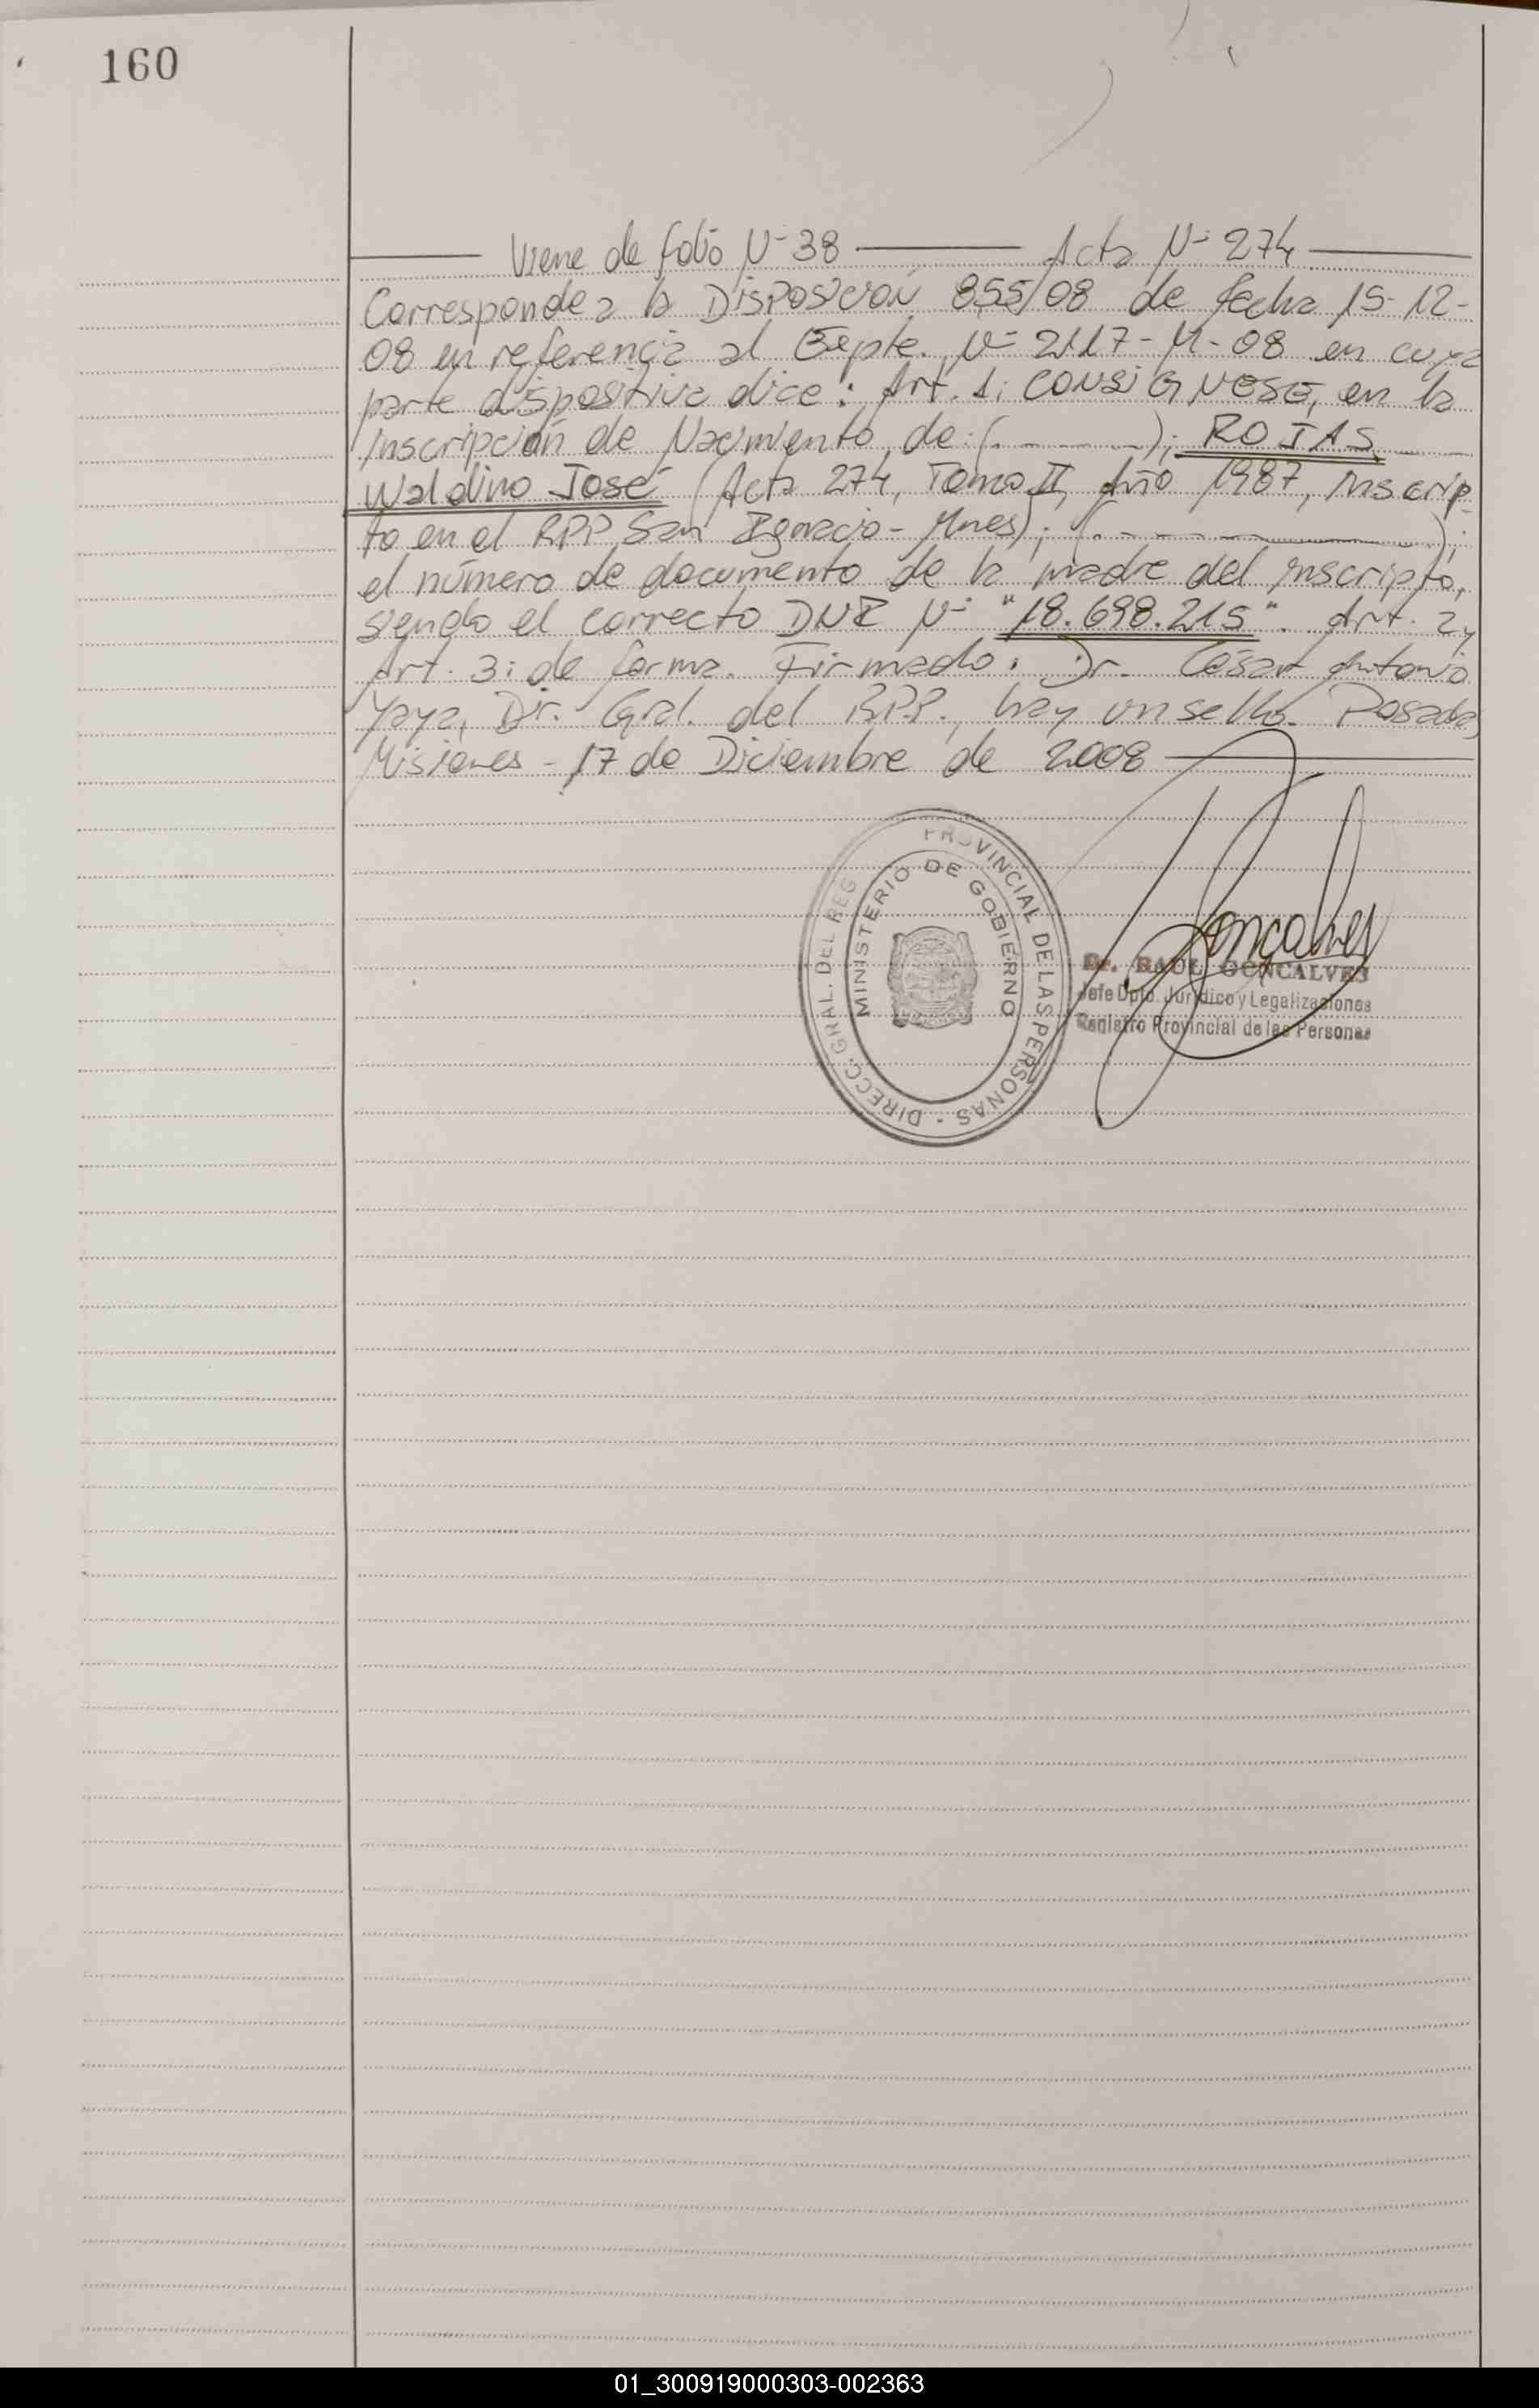 160
Viene de folio N- 38 Acta N- 274
Corresponde a la Disposición 855/08 de fecha 15-12-
08 en referencia al Expte. N- 2117-M-08 en cuya
parte dispositiva dice: Art. 1: CONSIGNESE, en la
Inscripción de Nacimiento de: (. - - - -); ROJAS
Waldino José (Acta 274, Tomo II, Año 1987, Inscrip-
to en el RPP San Ignacio - Mnes); (. - - - - -);
el número de documento de la madre del inscripto,
siendo el correcto DNI N- "18.698.215". Art. 2 y
Art. 3: de forma. Firmado: Dr. César Antonio
Yaya, Dir. Gral. del RPP., hay un sello. Posadas,
Misiones - 17 de Diciembre de 2008
DIRECC. GRAL. DEL REG PROVINCIAL DE LAS PERSONAS -
MINISTERIO DE GOBIERNO
Gonçalves
Dr. RAUL GONCALVES
Jefe Dpto. Jurídico y Legalizaciones
Registro Provincial de las Personas
01_300919000303-002363